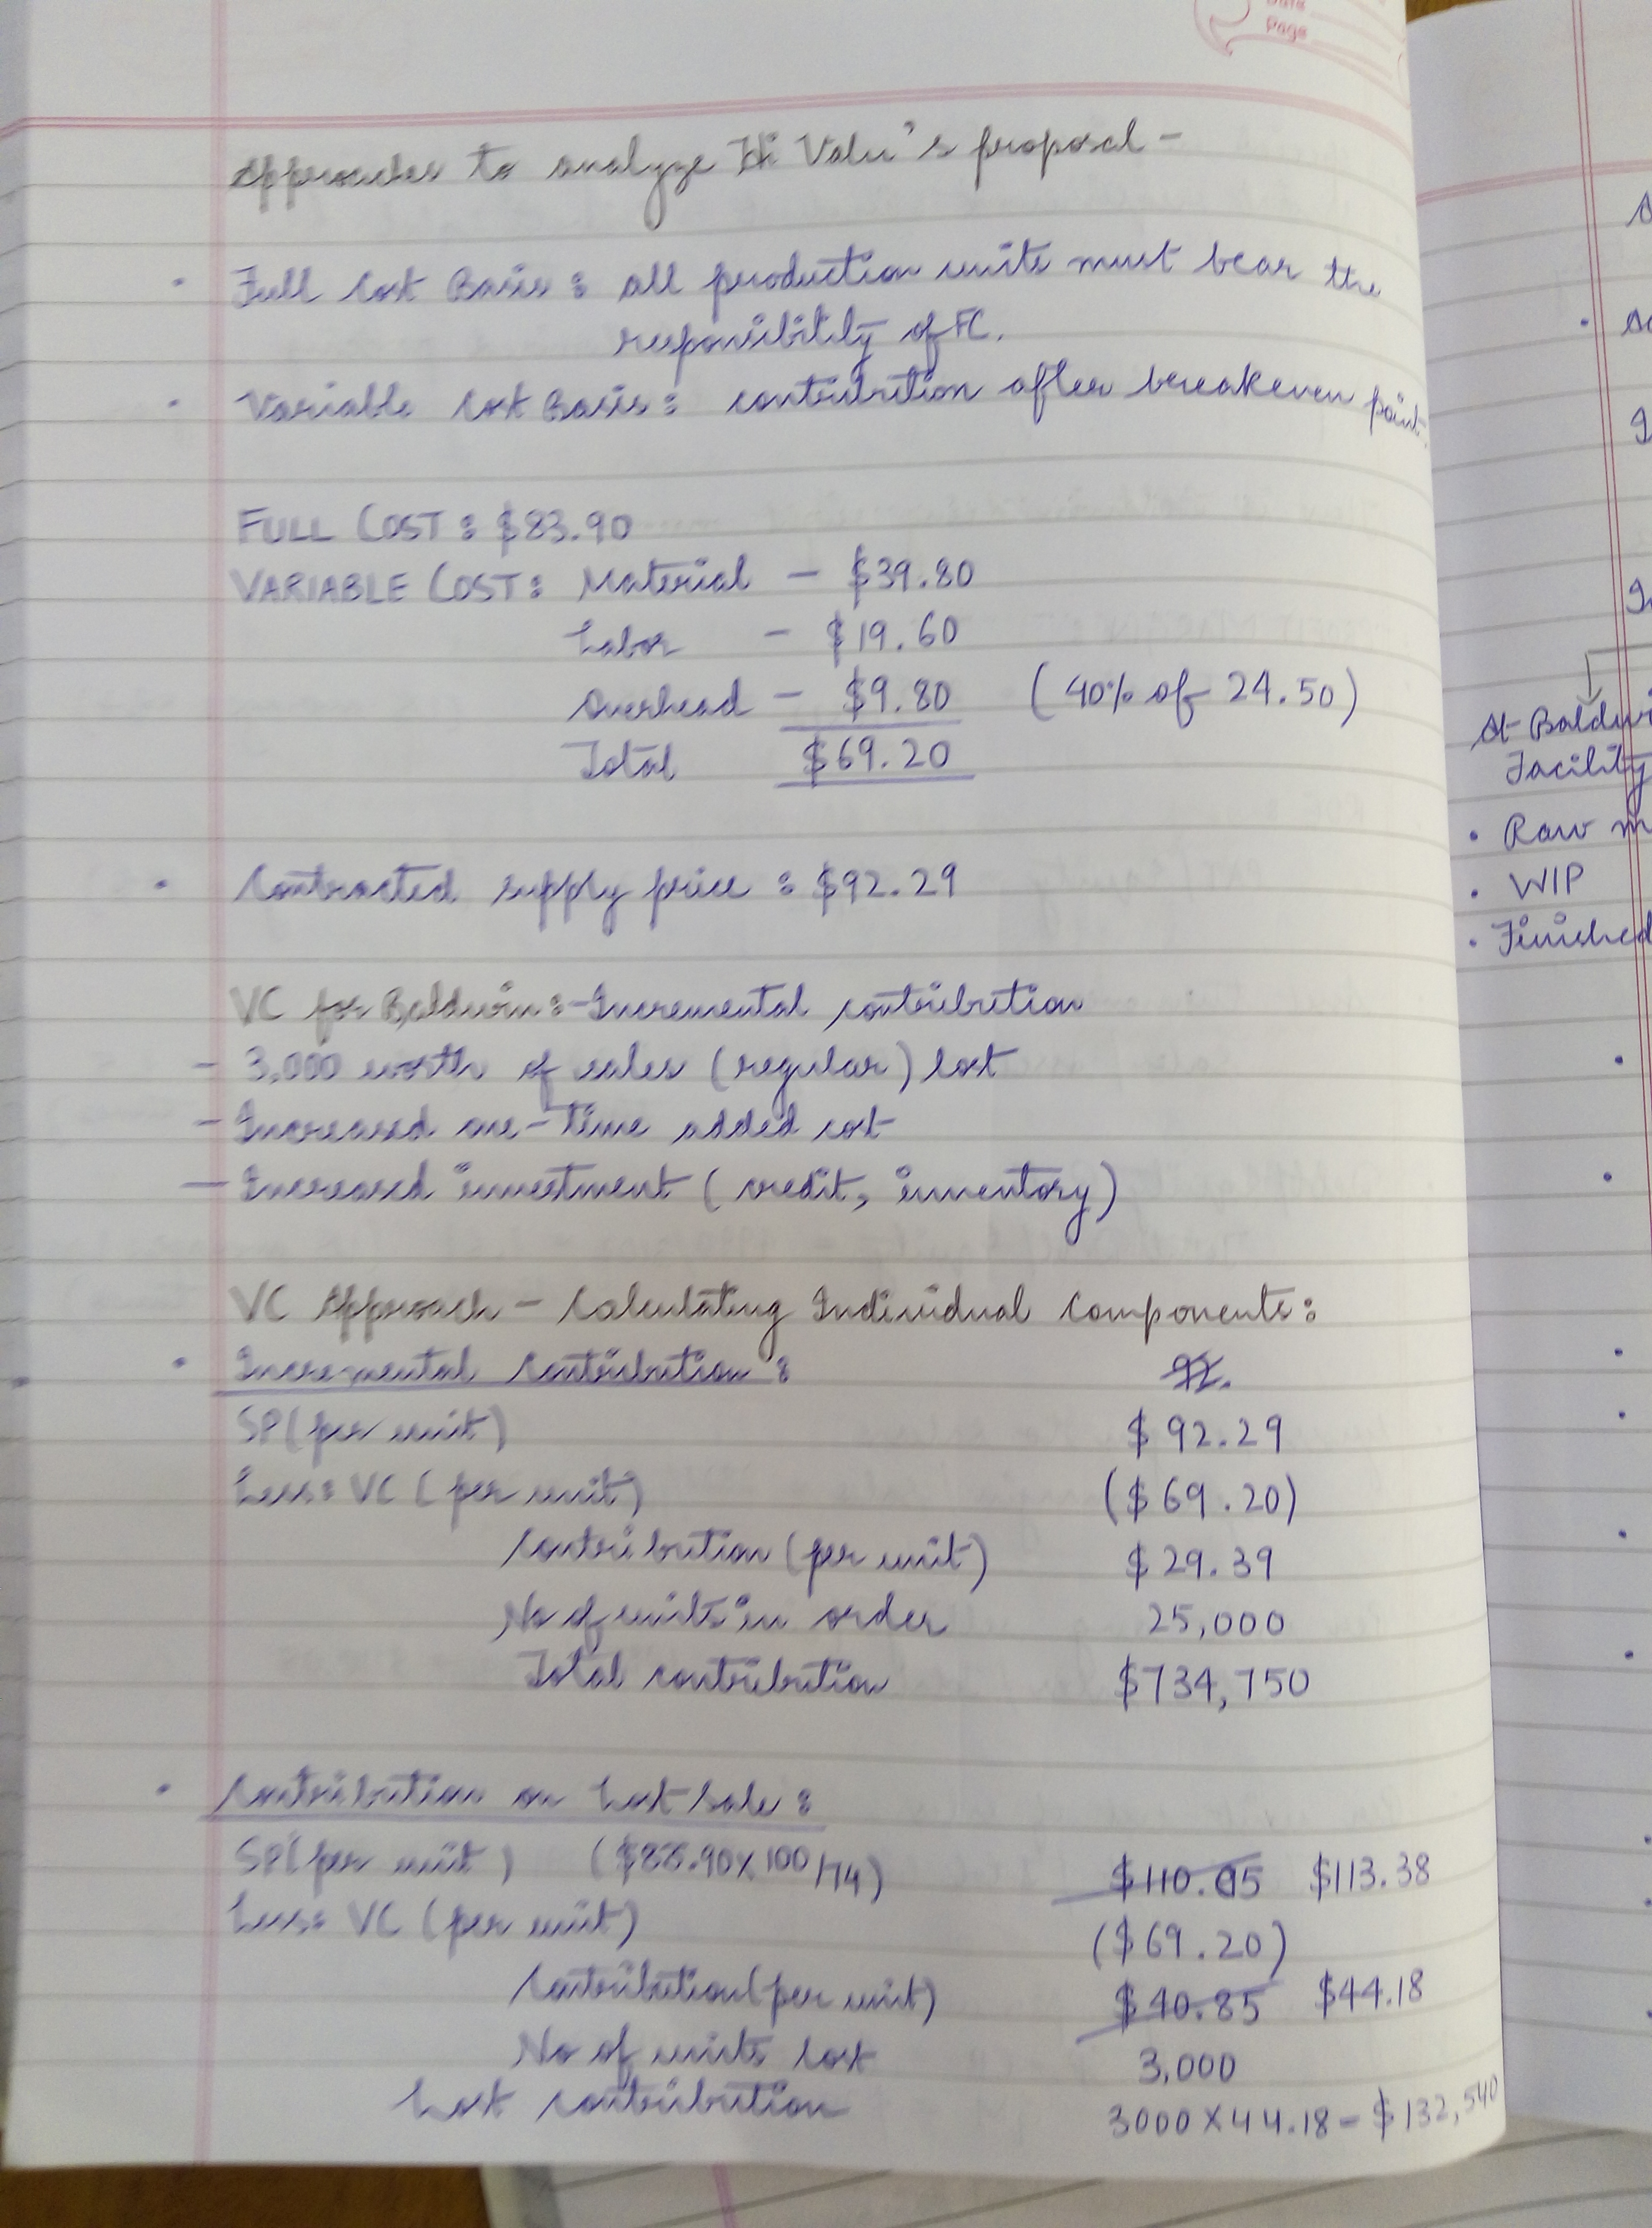 Date
Page
Approaches to analyze Hi Valu's proposal -
• Full Cost Basis : all production units must bear the
responsibility of FC.
• Variable Cost Basis : contribution after breakeven point.
FULL COST : $83.90
VARIABLE COST : Material - $39.80
Labor - $19.60
Overhead - $9.80 (40% of 24.50)
Total $69.20
• Contracted supply price : $92.29
VC for Baldwin :- Incremental contribution
- 3,000 worth of sales (regular) lost
- Increased one-time added cost
- Increased investment (credit, inventory)
VC Approach - Calculating Individual Components :
• Incremental Contribution :
SP (per unit) $92.29
Less: VC (per unit) ($69.20)
Contribution (per unit) $29.39
No of units in order 25,000
Total contribution $734,750
• Contribution on Lost Sale :
SP (per unit) ($83.90 x 100/74) $110.05 $113.38
Less: VC (per unit) ($69.20)
Contribution (per unit) $40.85 $44.18
No of units lost 3,000
Lost contribution 3000 x 44.18 = $132,540
At Baldwi
Facility
• Raw m
• WIP
• Finished